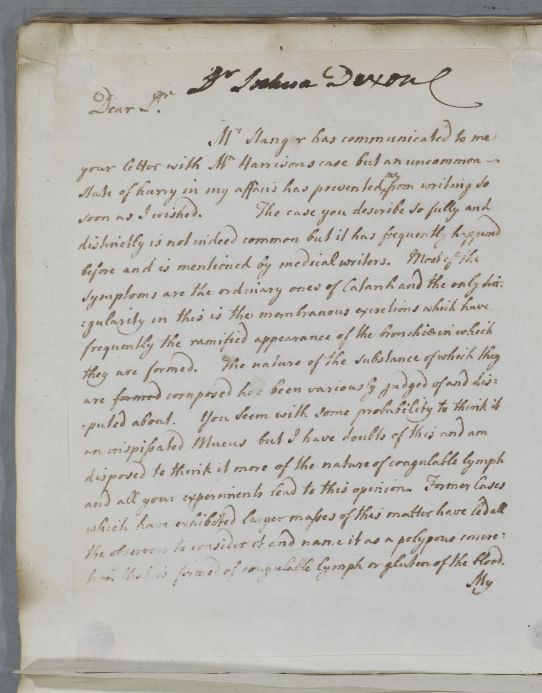 Dr Joshua Dixon
Dear Dr.
Mr Stanger has communicated to me
your letter with Mrs Harrisons case but an uncommon
State of hurry in my affairs has prevented me from writing so
soon as I wished. The case you describe so fully and
distinctly is not indeed common but it has frequently happened
before and is mentioned by medical writers. Most of the
symptoms are the ordinary ones of Catarrh and the only sin:
:gularity in this is the membranous excretions which have
frequently the ramified appearance of the bronchiae in which
they are formed. The nature of the substance of which they
are formed composed has been variously judged of and dis:
:puted about. You seem with some probability to think it
an inspissated Mucus but I have doubts of this and am
disposed to think it more of the nature of coagulable lymph
and all your experiments lead to this opinion. Former Cases
which have exhibited larger masses of this matter have led all
the observers to consider it and name it as a polypous concre:
tion that is formed of coagulable lymph or gluten of the blood.
My